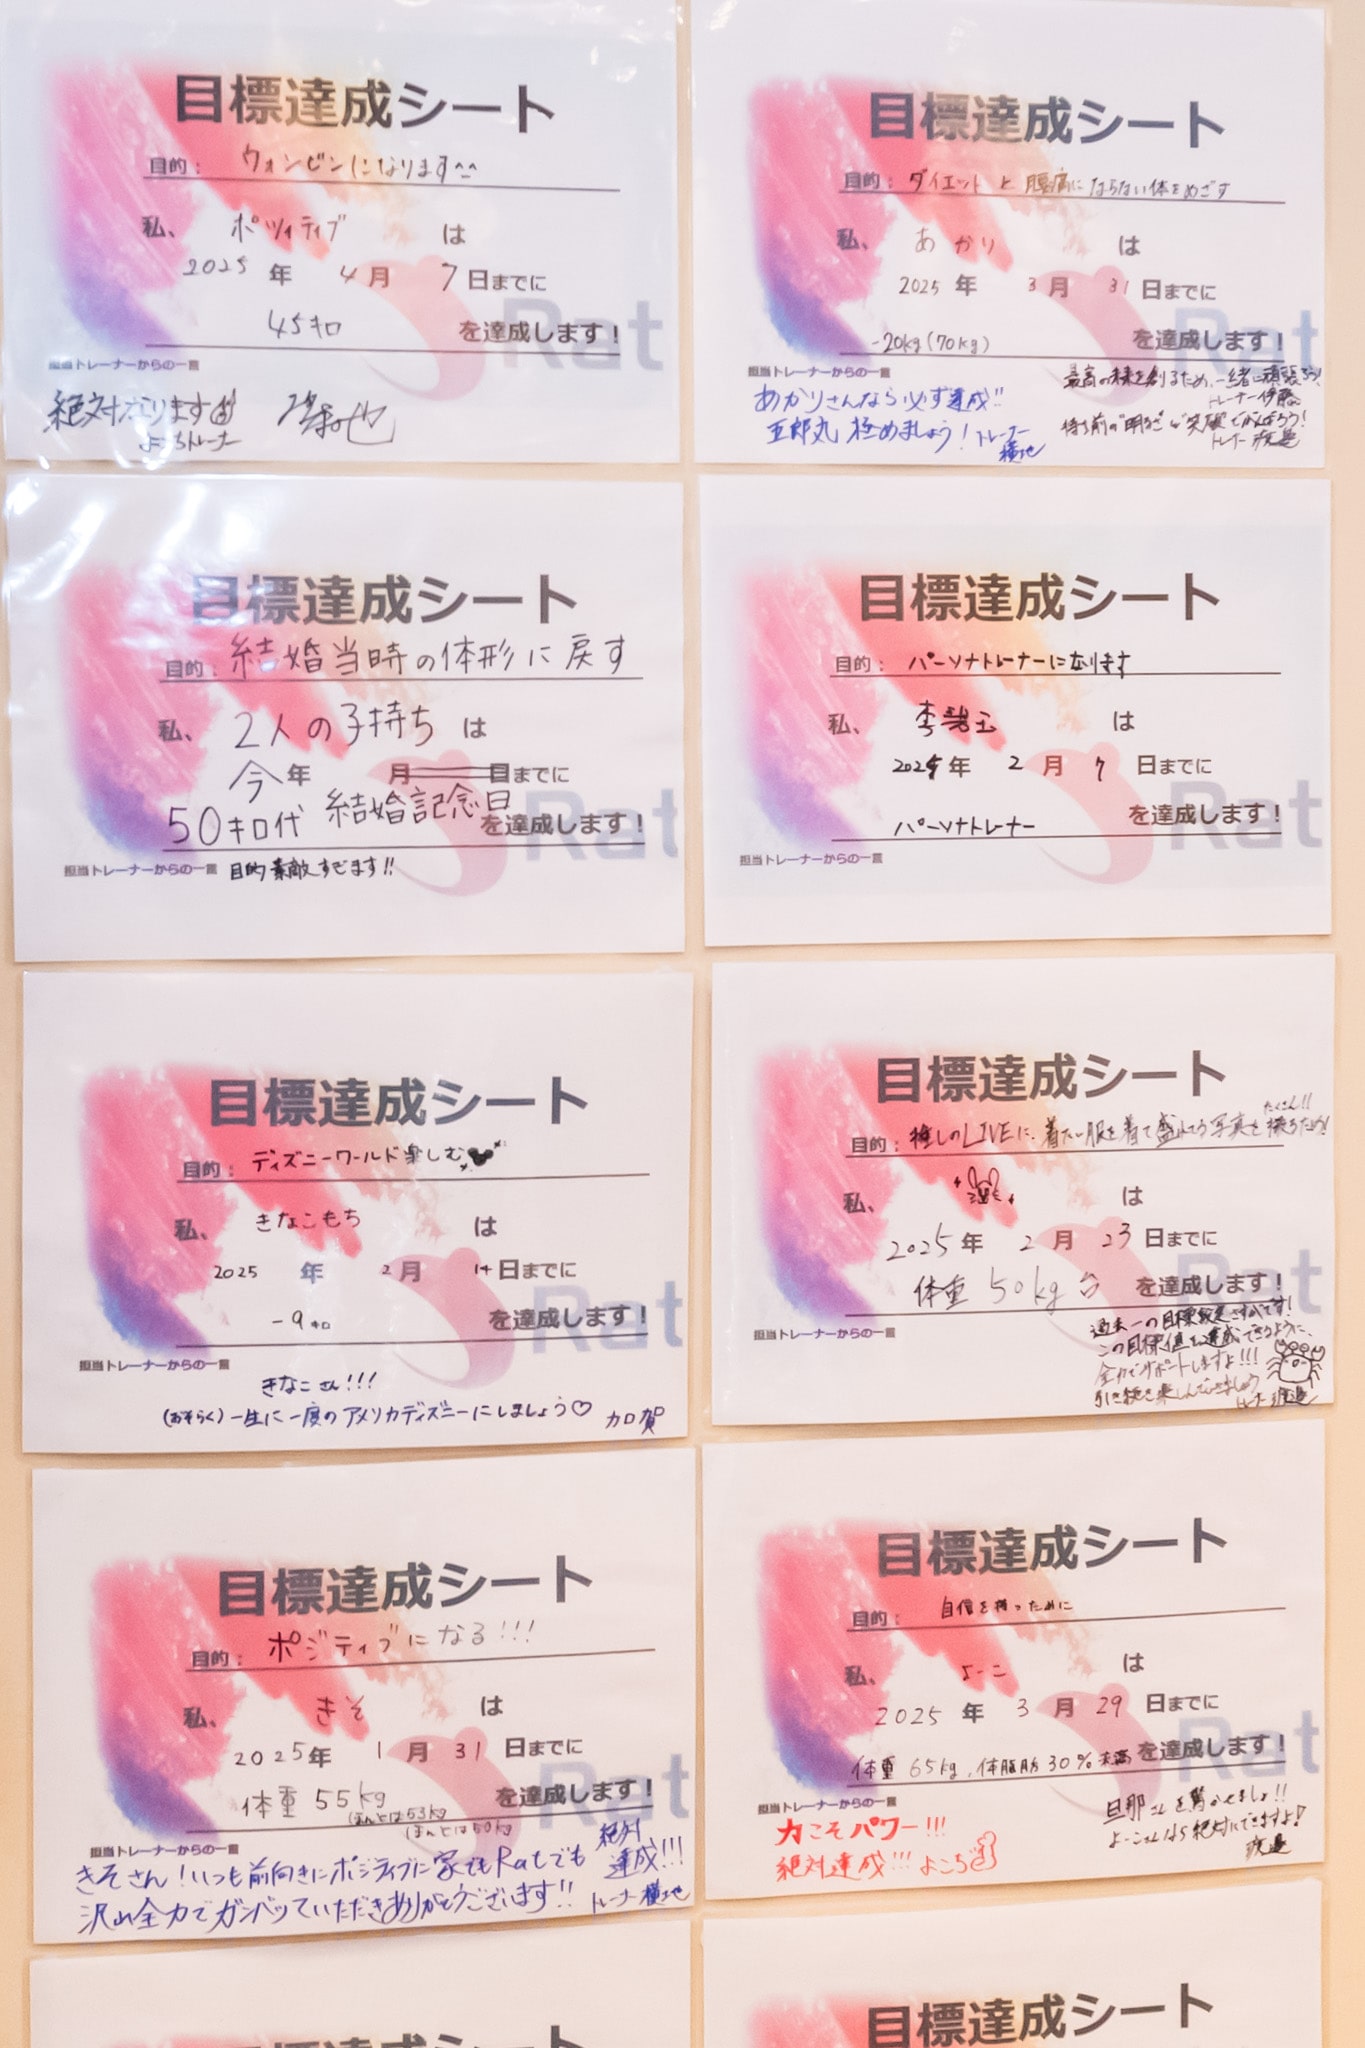 目標達成シート
目的： ウォンビンになります^^
私、 ポジティブ は
2025 年 4 月 7 日までに
45キロ を達成します！
Rat
担当トレーナーからの一言
絶対なります
よこちトレーナー
目標達成シート
目的： ダイエットと腰痛にならない体をめざす
私、 あかり は
2025 年 3 月 31 日までに
-20kg(70kg) を達成します！
Rat
担当トレーナーからの一言
あかりさんなら必ず達成!!
五郎丸 極めましょう！トレーナー横地
最高の未来を創るため、一緒に頑張ろう!
トレーナー伊藤
持ち前の"明るさ"と"笑顔"でがんばろう!
トレーナー渡邉
目標達成シート
目的： 結婚当時の体形に戻す
私、 2人の子持ち は
今年 月 日までに
結婚記念日
50キロ代 を達成します！
Rat
担当トレーナーからの一言 目的素敵すぎます!!
目標達成シート
目的： パーソナトレーナーになります
私、 は
2025年 2 月 7 日までに
パーソナトレーナー を達成します！
Rat
担当トレーナーからの一言
目標達成シート
目的： ディズニーワールド楽しむ
私、 きなこもち は
2025 年 2 月 14 日までに
-9キロ を達成します！
Rat
担当トレーナーからの一言
きなこさん!!!
(おそらく)一生に一度のアメリカディズニーにしましょう♡ 加賀
目標達成シート
たくさん!!
目的： 推しのLIVEに、着たい服を着て盛れてる写真を撮るため!
私、 は
2025 年 2 月 23 日までに
体重 50kg台 を達成します！
Rat
担当トレーナーからの一言
過去一の目標設定さすがです!
この目標値を達成できるように、
全力でサポートしますよ!!!
引き続き楽しんでいきましょう
トレーナー渡邉
目標達成シート
目的： ポジティブになる!!!
私、 きそ は
2025年 1 月 31 日までに
体重 55kg を達成します！
ほんとは53kg
ほんとは50kg
Rat
担当トレーナーからの一言
きそさん！いつも前向きにポジティブに家でもRatでも
沢山全力でガンバッていただきありがとうございます!!
絶対達成!!!
トレーナー横地
目標達成シート
目的： 自信を持つために
私、 よーこ は
2025 年 3 月 29 日までに
体重 65kg、体脂肪 30%未満 を達成します！
Rat
担当トレーナーからの一言
力こそパワー!!!
絶対達成!!! よこち
旦那さんを驚かせましょ!!
よーこさんなら絶対にできますよ!
渡邉
目標達成シート
目標達成シート